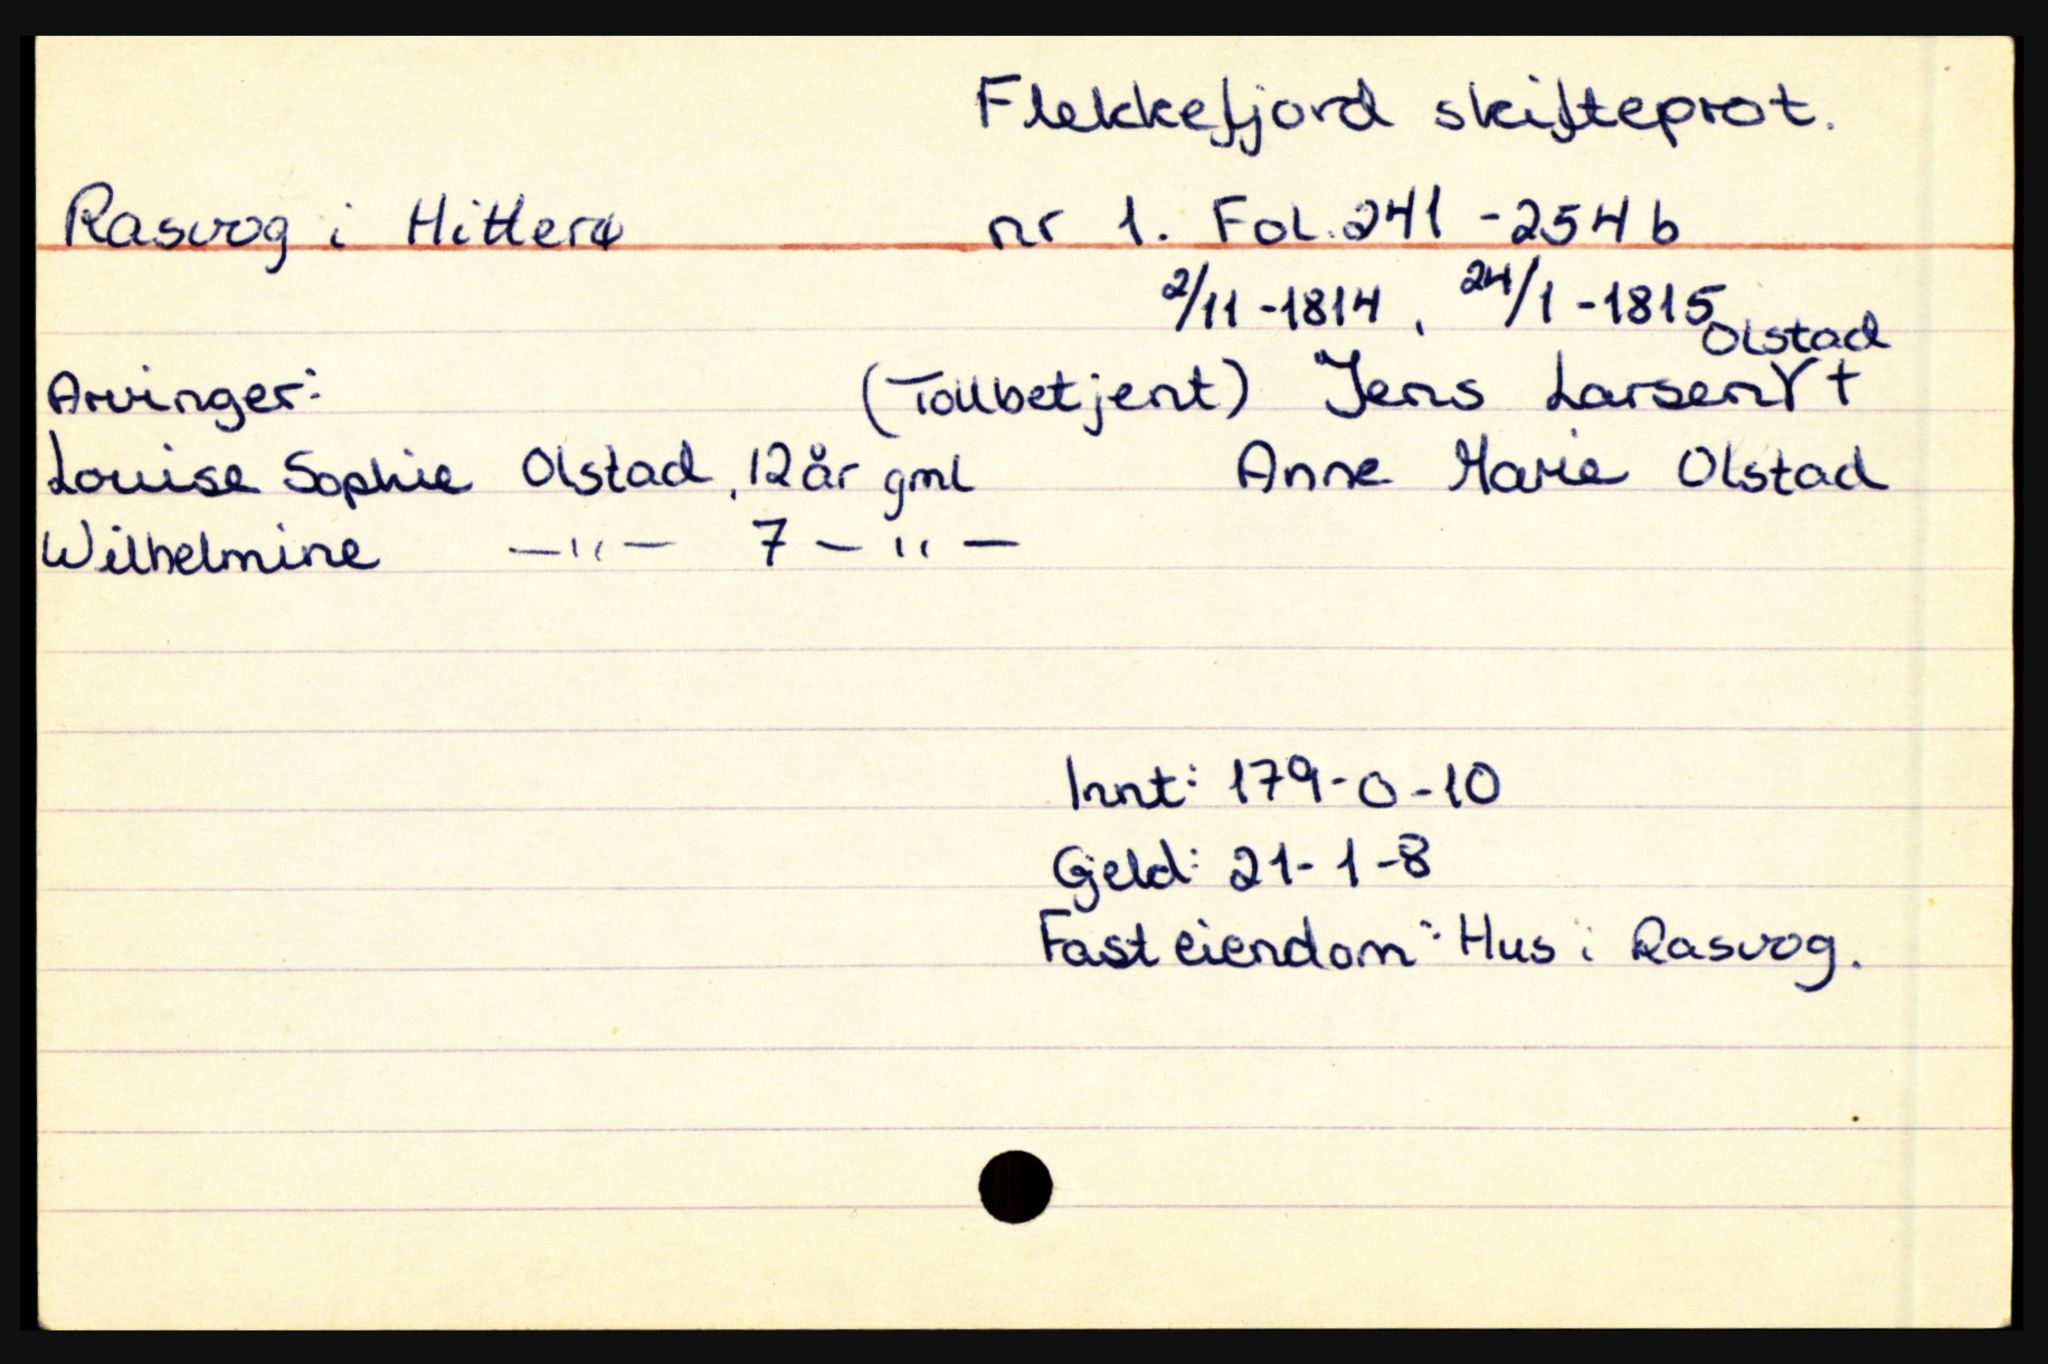 Flekkefjord skifteprot.
Rasvog i Hitterø nr 1. Fol. 241 - 254 b
2/11 - 1814, 24/1 - 1815
Olstad
Arvinger: (Tollbetjent) Jens Larsen †
Louise Sophie Olstad, 12 år gml Anne Marie Olstad
Wilhelmine —"— 7 —"—
Innt: 179 - 0 - 10
Gjeld: 21 - 1 - 8
Fast eiendom: Hus i Rasvog.